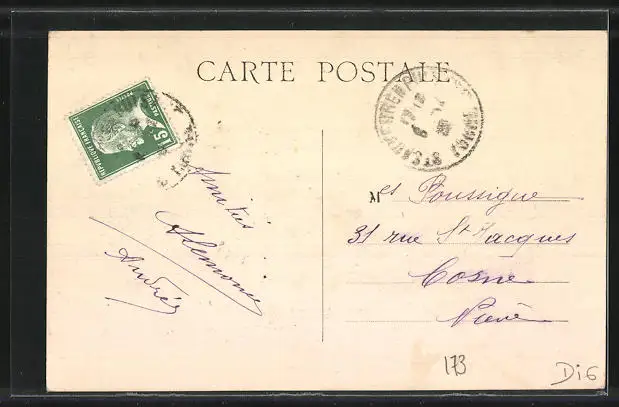 CARTE POSTALE
REPUBLIQUE FRANÇAISE
15c
POSTES
Amitiés
Andrée
Mes Poussigue
31 rue St Jacques
Cosne
Nièvre
173
Di6